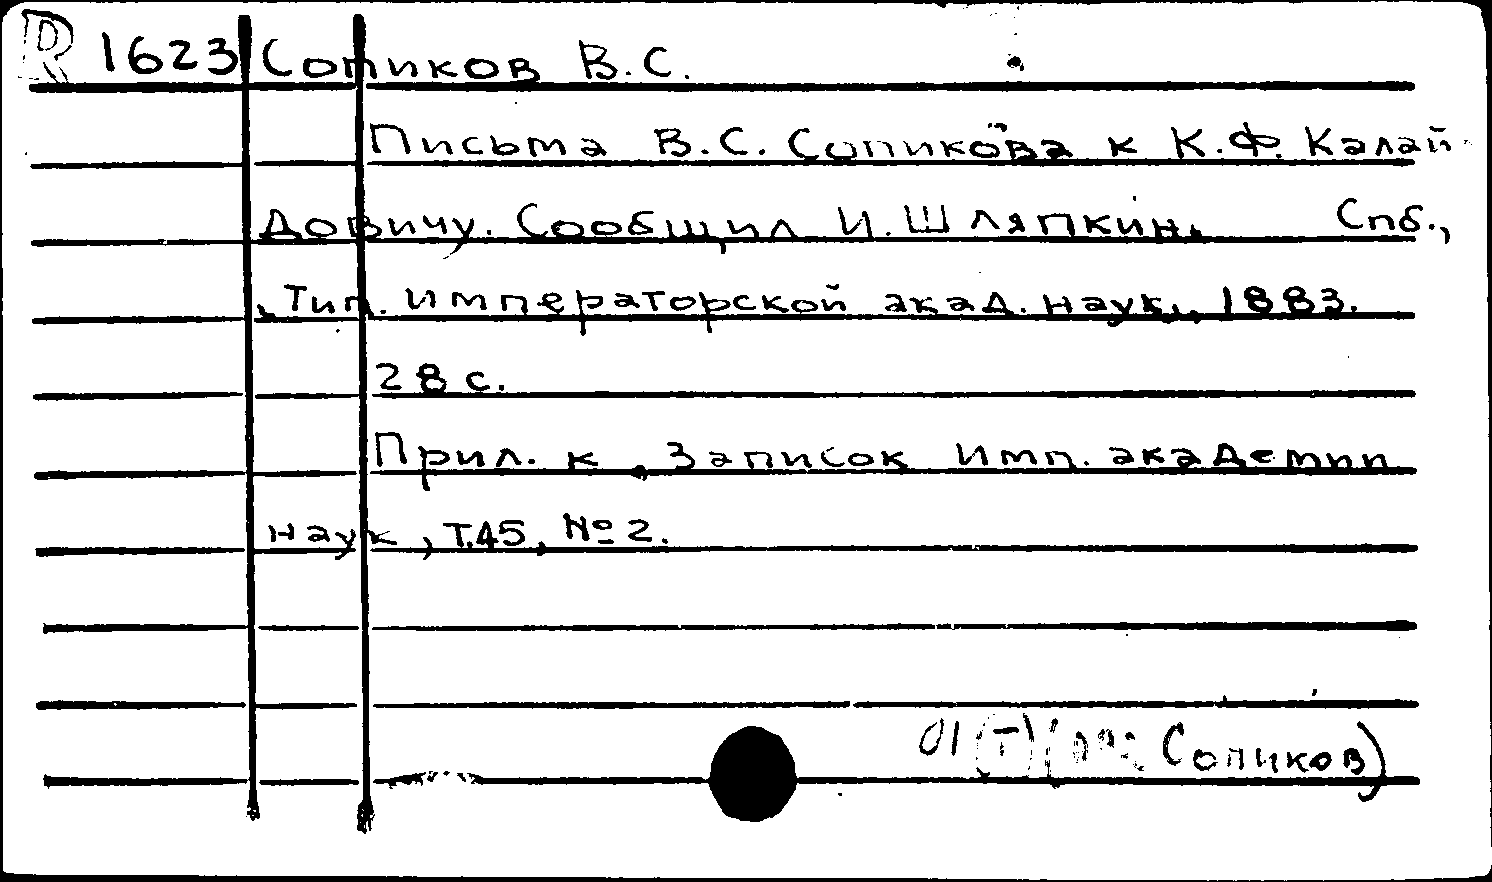 R 1623 Сопиков В.С.
Письма В.С. Сопикова к К.Ф. Калай-
довичу. Сообщил И. Шляпкин. Спб.,
Тип. императорской акад. наук, 1883.
28 с.
Прил. к Записок имп. академии
наук, Т.45, № 2.
01(Т)( Сопиков)